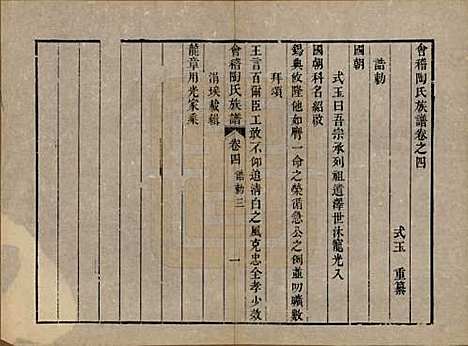 會稽陶氏族譜卷之四
式玉 重纂
誥勅
國朝
式玉曰吾宗承列祖道澤世沐寵光入
國朝科名紹啟
錫典攸隆他如膺一命之榮循急公之例並叨曠數
拜頌
王言百爾臣工敢不仰追清白之風克忠全孝少效
會稽陶氏族譜 卷四 誥勅三 一
涓埃載輯
龍章用光家乘